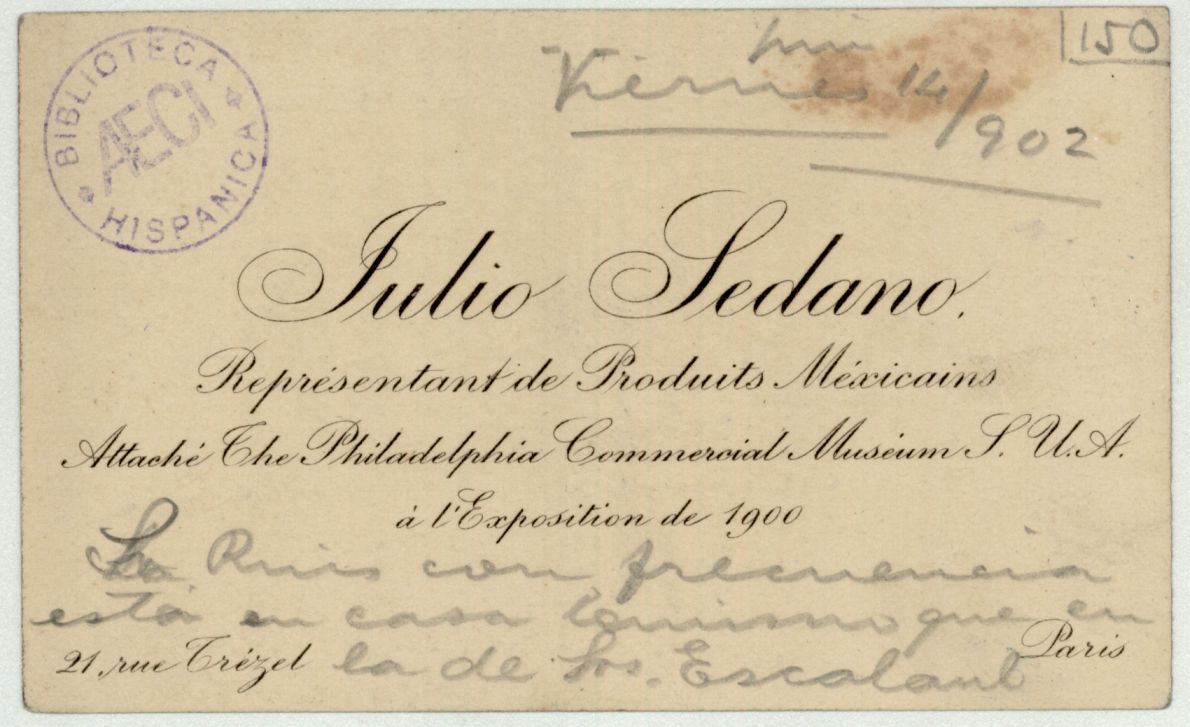 150
BIBLIOTECA
AECI
HISPANICA
Viernes 14/902
Julio Sedano.
Représentant de Produits Méxicains
Attaché The Philadelphia Commercial Muséum S. U. A.
à l'Exposition de 1900
Ruis con frecuencia
está en casa lo mismo que en
la de Sres. Escalante
21, rue Trézel
Paris